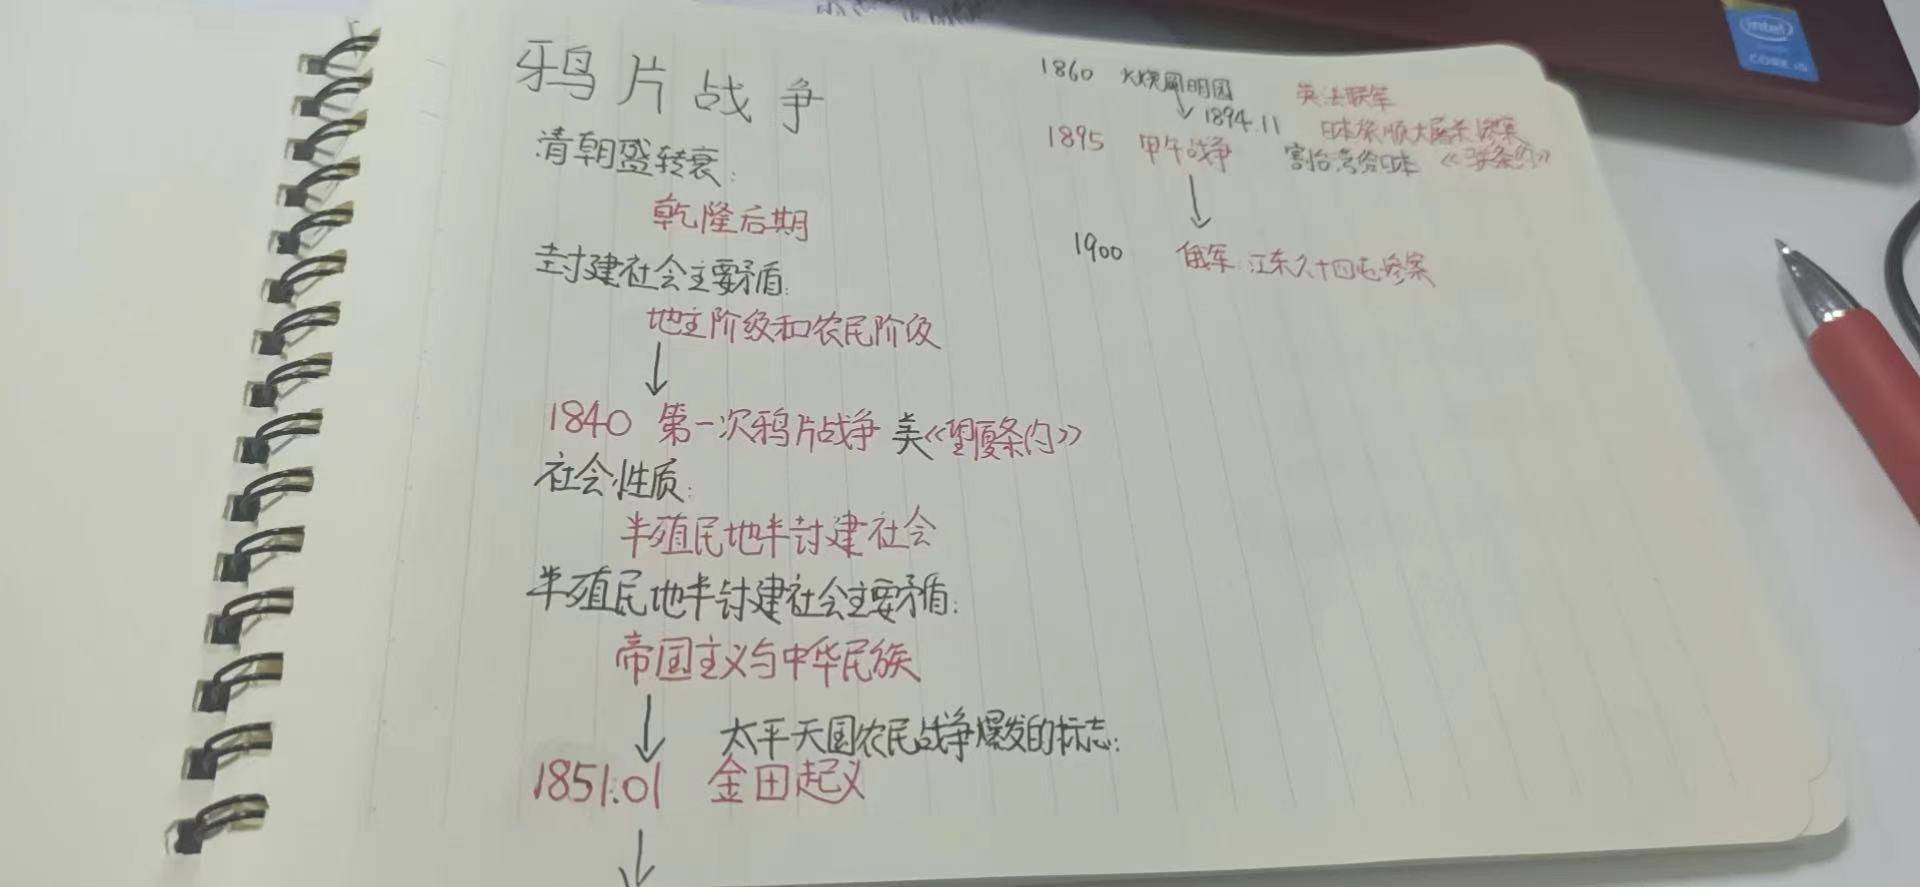 鸦片战争
清朝盛转衰:
乾隆后期
封建社会主要矛盾:
地主阶级和农民阶级
1840 第一次鸦片战争 美《望厦条约》
社会性质:
半殖民地半封建社会
半殖民地半封建社会主要矛盾:
帝国主义与中华民族
太平天国农民战争爆发的标志:
1851.01 金田起义
1860 火烧圆明园 英法联军
1894.11 日本旅顺大屠杀惨案
1895 甲午战争 割台湾给日本
1900 俄军 江东六十四屯惨案
intel
CORE i5